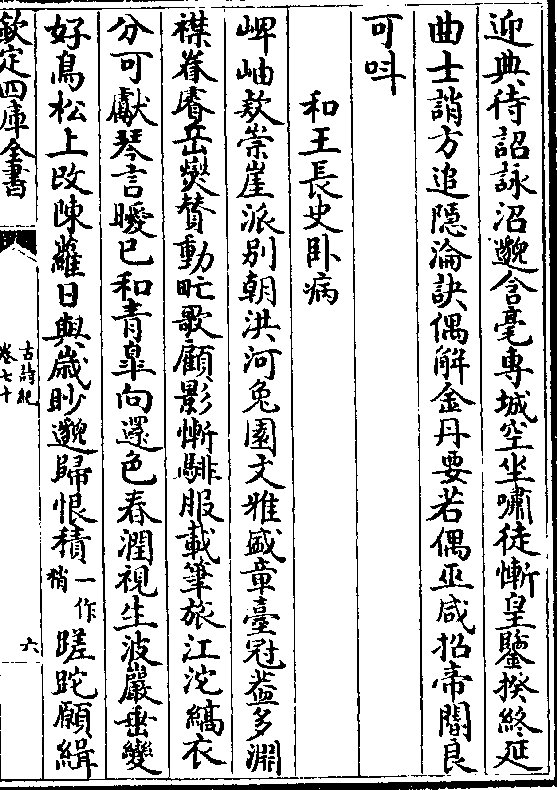 迎典待詔詠沼邈含毫專城空坐嘯徒慚皇鑒揆終延
曲士誚方追隱淪訣偶解金丹要若偶巫咸招帝閽良
可叫
和王長史卧病
岬岫款崇崖派别朝洪河兔園文雅盛章臺冠葢多淵
襟眷睿岳爕賛動甿歌顧影慚騑服載筆旅江沱縞衣
分可獻琴言曖巳和青臯向還色春潤視生波巖垂變
好鳥松上改陳蘿日與歳眇邈歸恨積一作稍蹉跎願緝
欽定四庫全書
古詩紀
卷七十
六